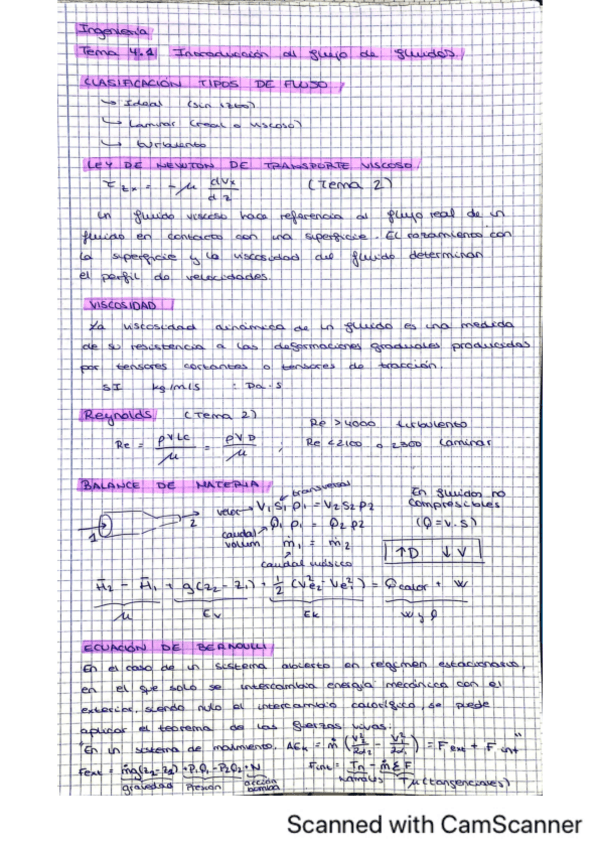 Ingeniería
Tema 4.1 Introducción al flujo de fluidos
CLASIFICACIÓN TIPOS DE FLUJO
↳ Ideal (sin roz)
↳ Laminar (real o viscoso)
↳ turbulento
LEY DE NEWTON DE TRANSPORTE VISCOSO
τzx = -μ dVx / dz (Tema 2)
Un fluido viscoso hace referencia al flujo real de un
fluido en contacto con una superficie. El rozamiento con
la superficie y la viscosidad del fluido determinan
el perfil de velocidades.
VISCOSIDAD
La viscosidad dinámica de un fluido es una medida
de su resistencia a las deformaciones graduales producidas
por tensores cortantes o tensores de tracción.
SI kg/m/s : Pa·s
Reynolds (Tema 2)
Re = ρVLc / μ = ρVD / μ ;
Re >4000 turbulento
Re <2100 o 2300 laminar
BALANCE DE MATERIA
transversal
1 2
veloc → V1 S1 ρ1 = V2 S2 ρ2
caudal volum → Q1 ρ1 = Q2 ρ2
ṁ1 = ṁ2
caudal másico
En fluidos no
compresibles
(Q = v.s)
↑D ↓V
H2 - H1 + g(z2 - z1) + 1/2 (Ve2² - Ve1²) = Qcalor + W
μ Ev Ek W y Q
ECUACIÓN DE BERNOULLI
En el caso de un sistema abierto en régimen estacionario,
en el que solo se intercambia energía mecánica con el
exterior, siendo nulo el intercambio calorífico, se puede
aplicar el teorema de las fuerzas vivas:
"En un sistema de movimiento, ΔEk = ṁ (V2²/2α2 - V1²/2α1) = Fext + Fint"
Fext = ṁg(z1-z2) + P1Q1 - P2Q2 + N
gravedad Presión acción bomba
Fint = Tn - ṁΣF
normales Tμ (tangenciales)
Scanned with CamScanner